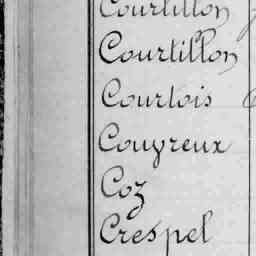 Courtillon
Courtillon
Courtois
Couyreux
Coz
Crespel